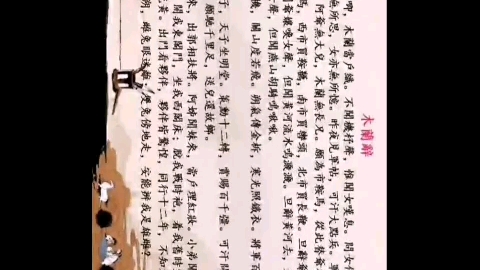 木蘭辭
唧,木蘭當戶織。不聞機杼聲,惟聞女嘆息。問女
無所思,女亦無所憶。昨夜見軍帖,可汗大點兵。
阿爺無大兒,木蘭無長兄。願為市鞍馬,從此替爺
馬,西市買鞍韉,南市買轡頭,北市買長鞭。旦辭爺
孃喚女聲,但聞黃河流水鳴濺濺。旦辭黃河去,
聲,但聞燕山胡騎鳴啾啾。
機,關山度若飛。朔氣傳金柝,寒光照鐵衣。將軍百
子,天子坐明堂。策勳十二轉,賞賜百千彊。可汗問
願馳千里足,送兒還故鄉。
來,出郭相扶將。阿姊聞妹來,當戶理紅妝。小弟聞
開我東閣門,坐我西閣床;脫我戰時袍,着我舊時
黃。出門看夥伴,夥伴皆驚惶,同行十二年,不知
朔,雌兔眼迷離;雙兔傍地走,安能辨我是雄雌?